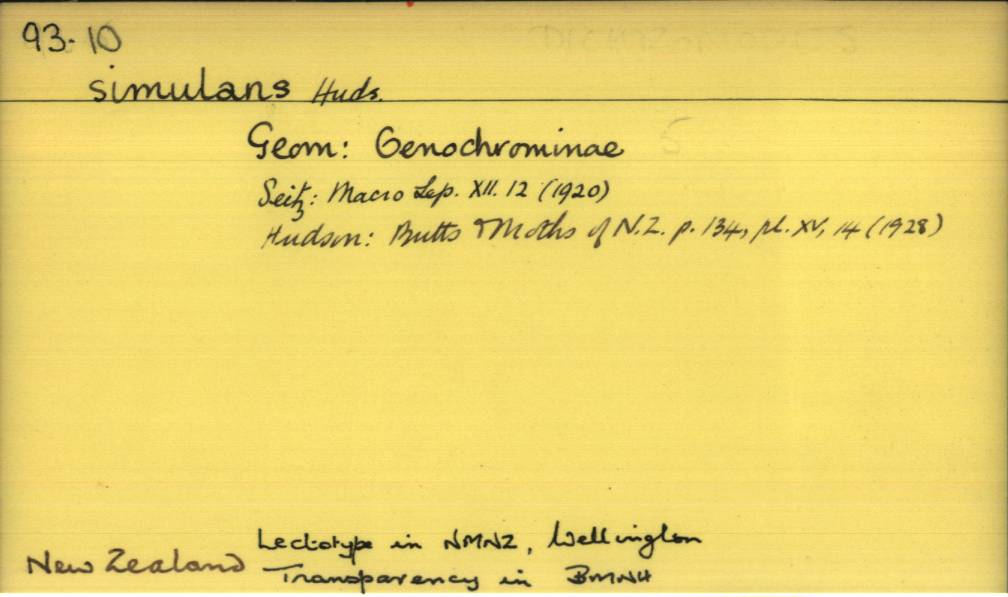 93-10
simulans Huds.
Geom: Oenochrominae
Seitz: Macro Lep. XII. 12 (1920)
Hudson: Butts & Moths of N.Z. p. 134, pl. XV, 14 (1928)
Lectotype in NMNZ, Wellington
New Zealand Transparency in BMNH